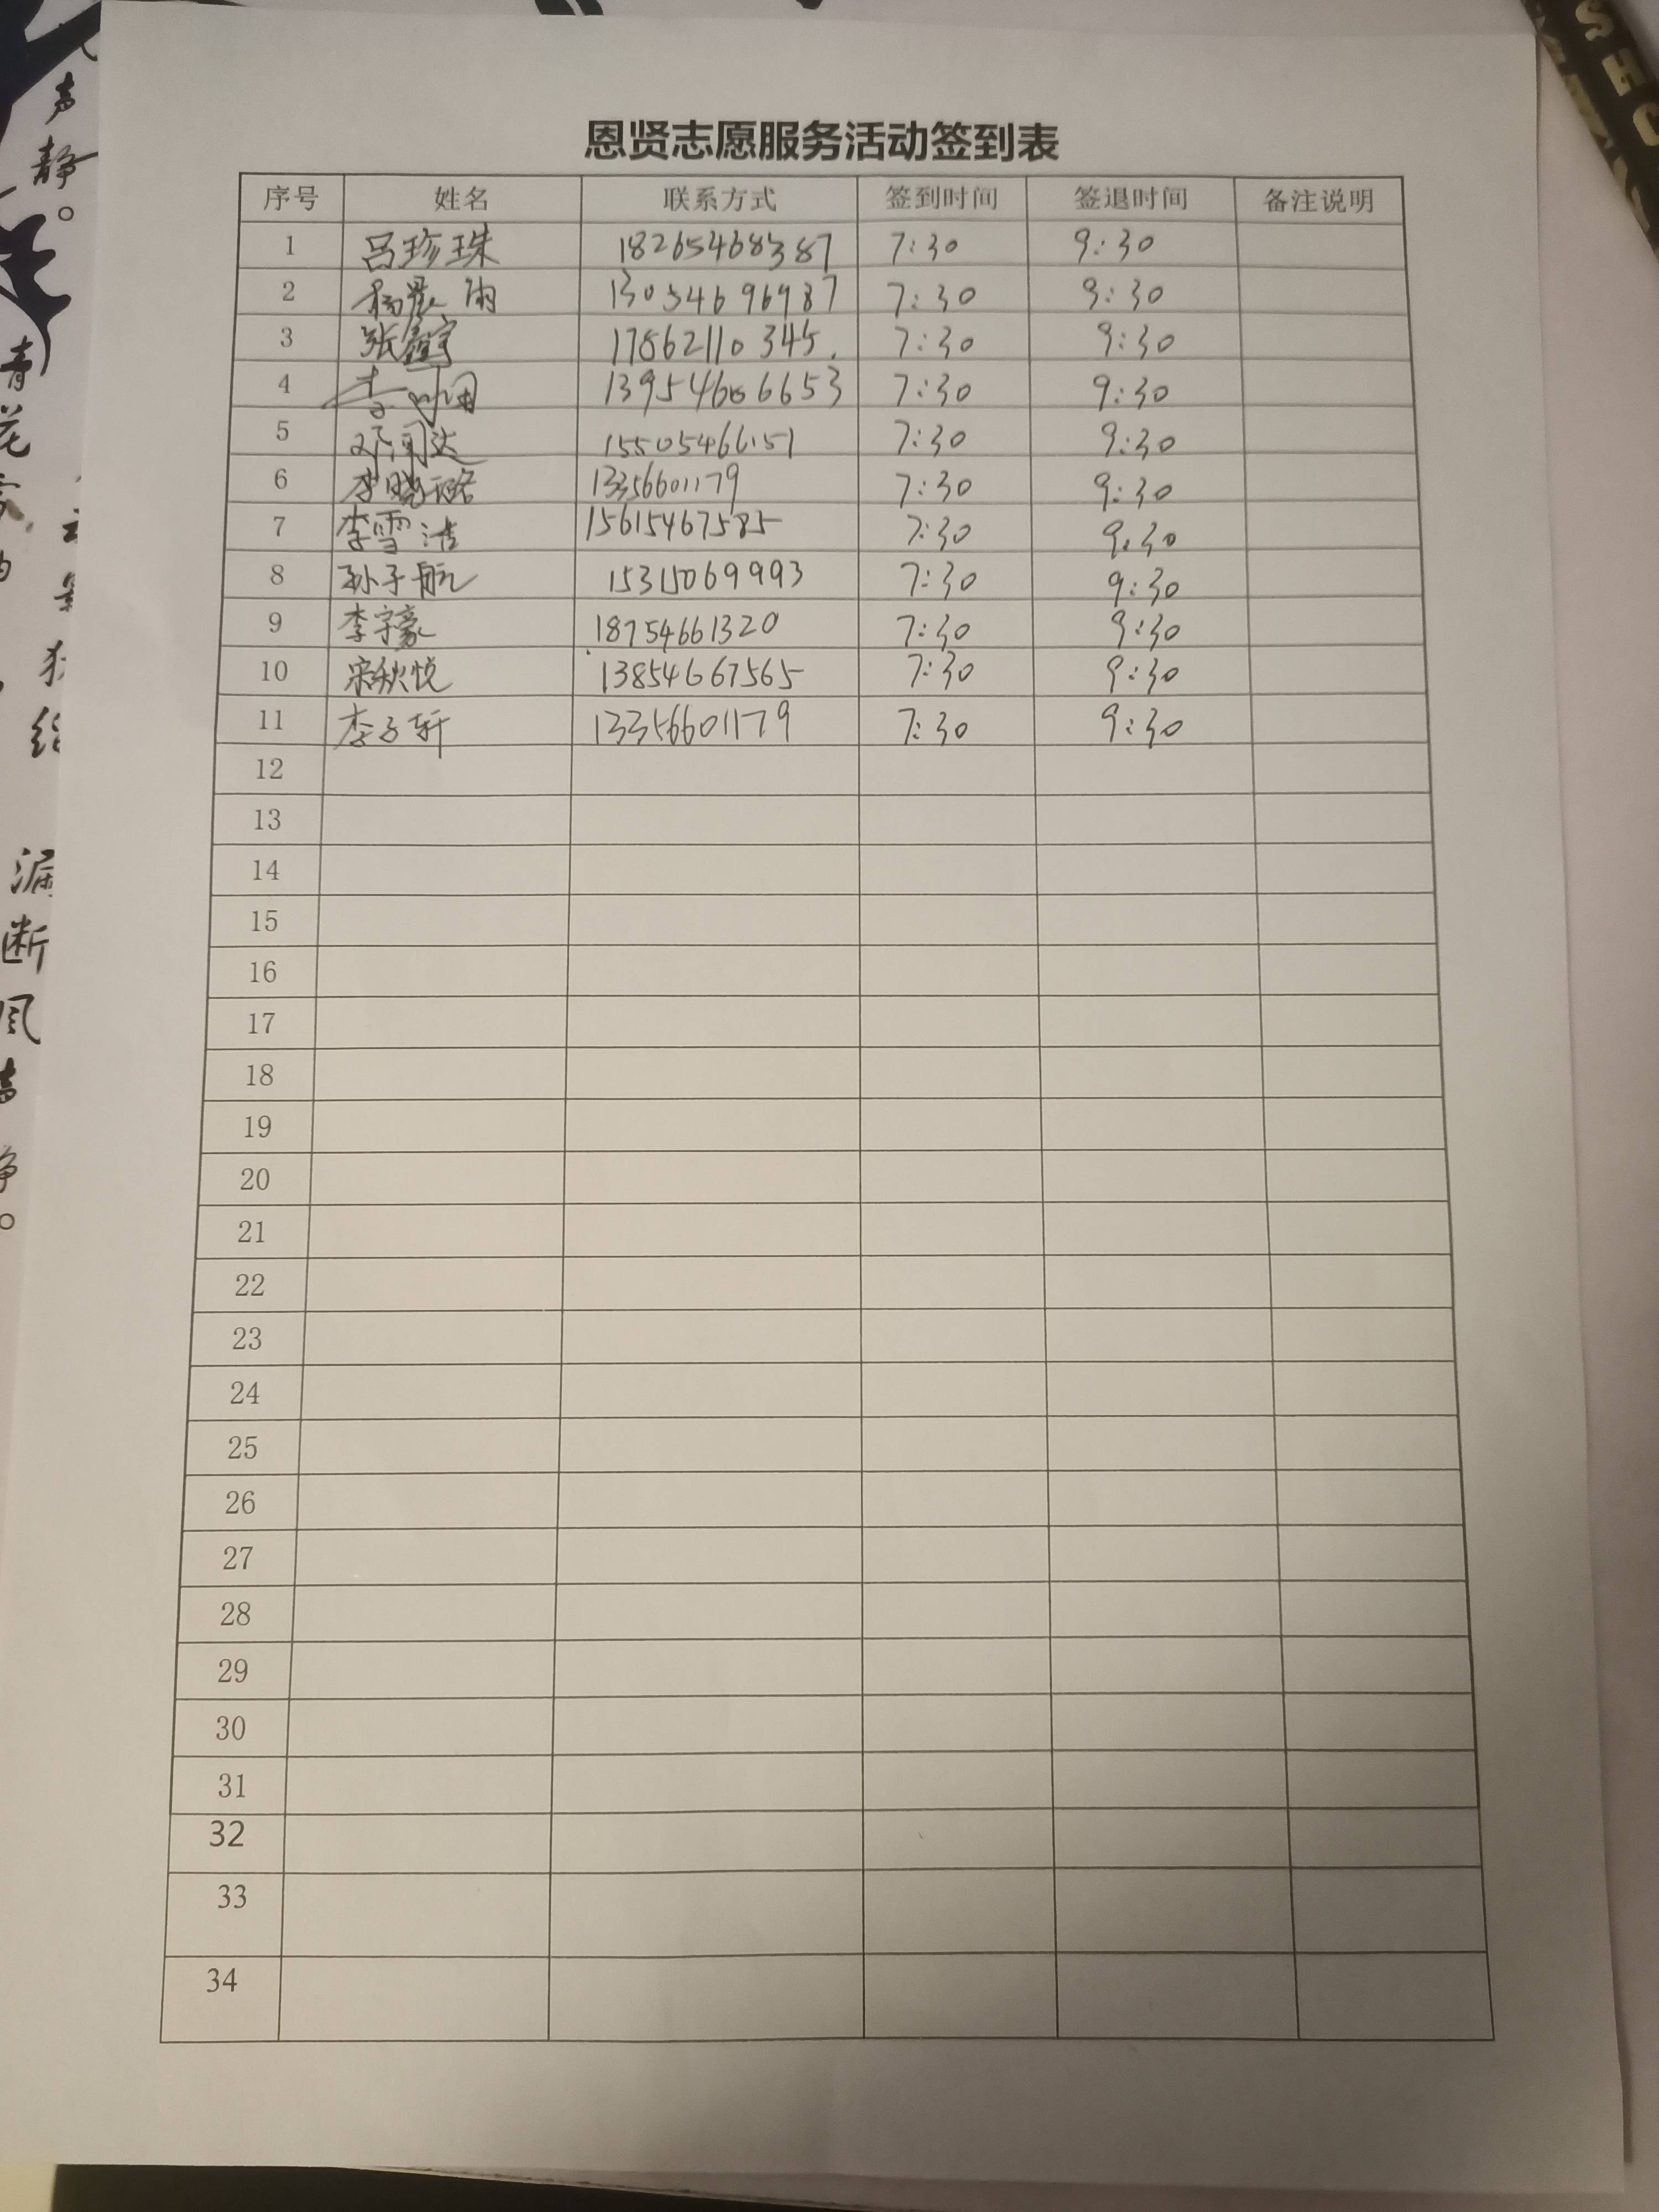 恩贤志愿服务活动签到表
序号 姓名 联系方式 签到时间 签退时间 备注说明
1 吕珍珠 18265468387 7:30 9:30
2 杨晨雨 13054696987 7:30 9:30
3 张鑫宇 17862110345. 7:30 9:30
4 李 13954666653 7:30 9:30
5 邓闻达 15505466151 7:30 9:30
6 李晓璐 13356601179 7:30 9:30
7 李雪洁 15615467585 7:30 9:30
8 孙子航 15315069993 7:30 9:30
9 李宇豪 18754661320 7:30 9:30
10 宋秋悦 13854667565 7:30 9:30
11 李子轩 13356601179 7:30 9:30
12
13
14
15
16
17
18
19
20
21
22
23
24
25
26
27
28
29
30
31
32
33
34
声
静。
青
花
漏
断
风
声
静。